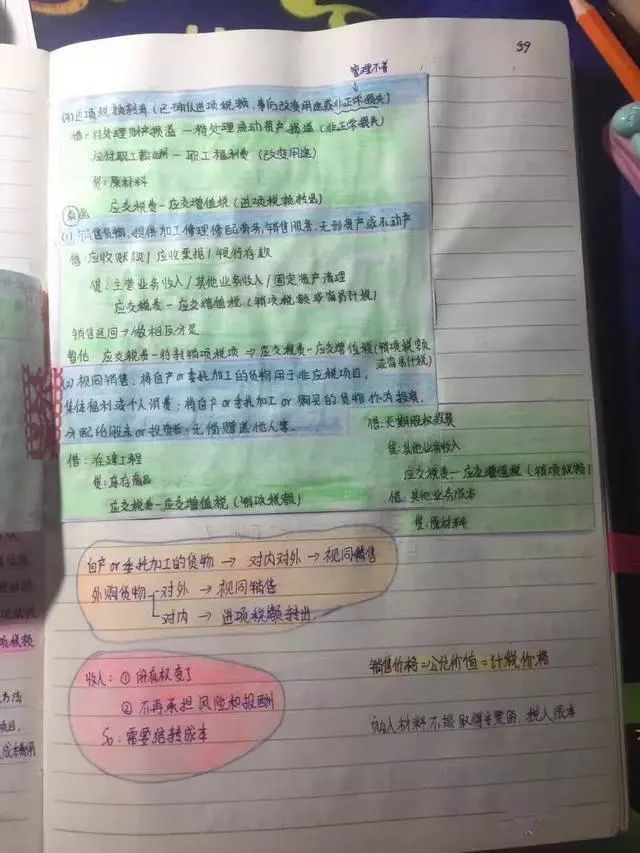 59
管理不善
(4)进项税额转出(已确认进项税额,事后改变用途或非正常损失)
借:待处理财产损溢—待处理流动资产损溢(非正常损失)
应付职工薪酬—职工福利费(改变用途)
贷:原材料
应交税费—应交增值税(进项税额转出)
(1)销售货物、提供加工修理修配劳务、销售服务、无形资产或不动产
借:应收账款/应收票据/银行存款
贷:主营业务收入/其他业务收入/固定资产清理
应交税费—应交增值税(销项税额或简易计税)
销售退回→做相反分录
暂估 应交税费—待转销项税额 ⇒ 应交税费—应交增值税(销项税额
或简易计税)
(2)视同销售、将自产or委托加工的货物用于非应税项目,
集体福利或个人消费;将自产or委托加工or购买的货物作为投资,
分配给股东or投资者、无偿赠送他人等.
借:在建工程
贷:库存商品
应交税费—应交增值税(销项税额)
借:长期股权投资
贷:其他业务收入
应交税费—应交增值税(销项税额)
借:其他业务成本
贷:原材料
自产or委托加工的货物 → 对内对外 → 视同销售
外购货物 对外 → 视同销售
对内 → 进项税额转出.
收入:①所有权变了
②不再承担风险和报酬
So:需要结转成本
销售价格=公允价值=计税价格
购入材料不能取得专票的,税入成本